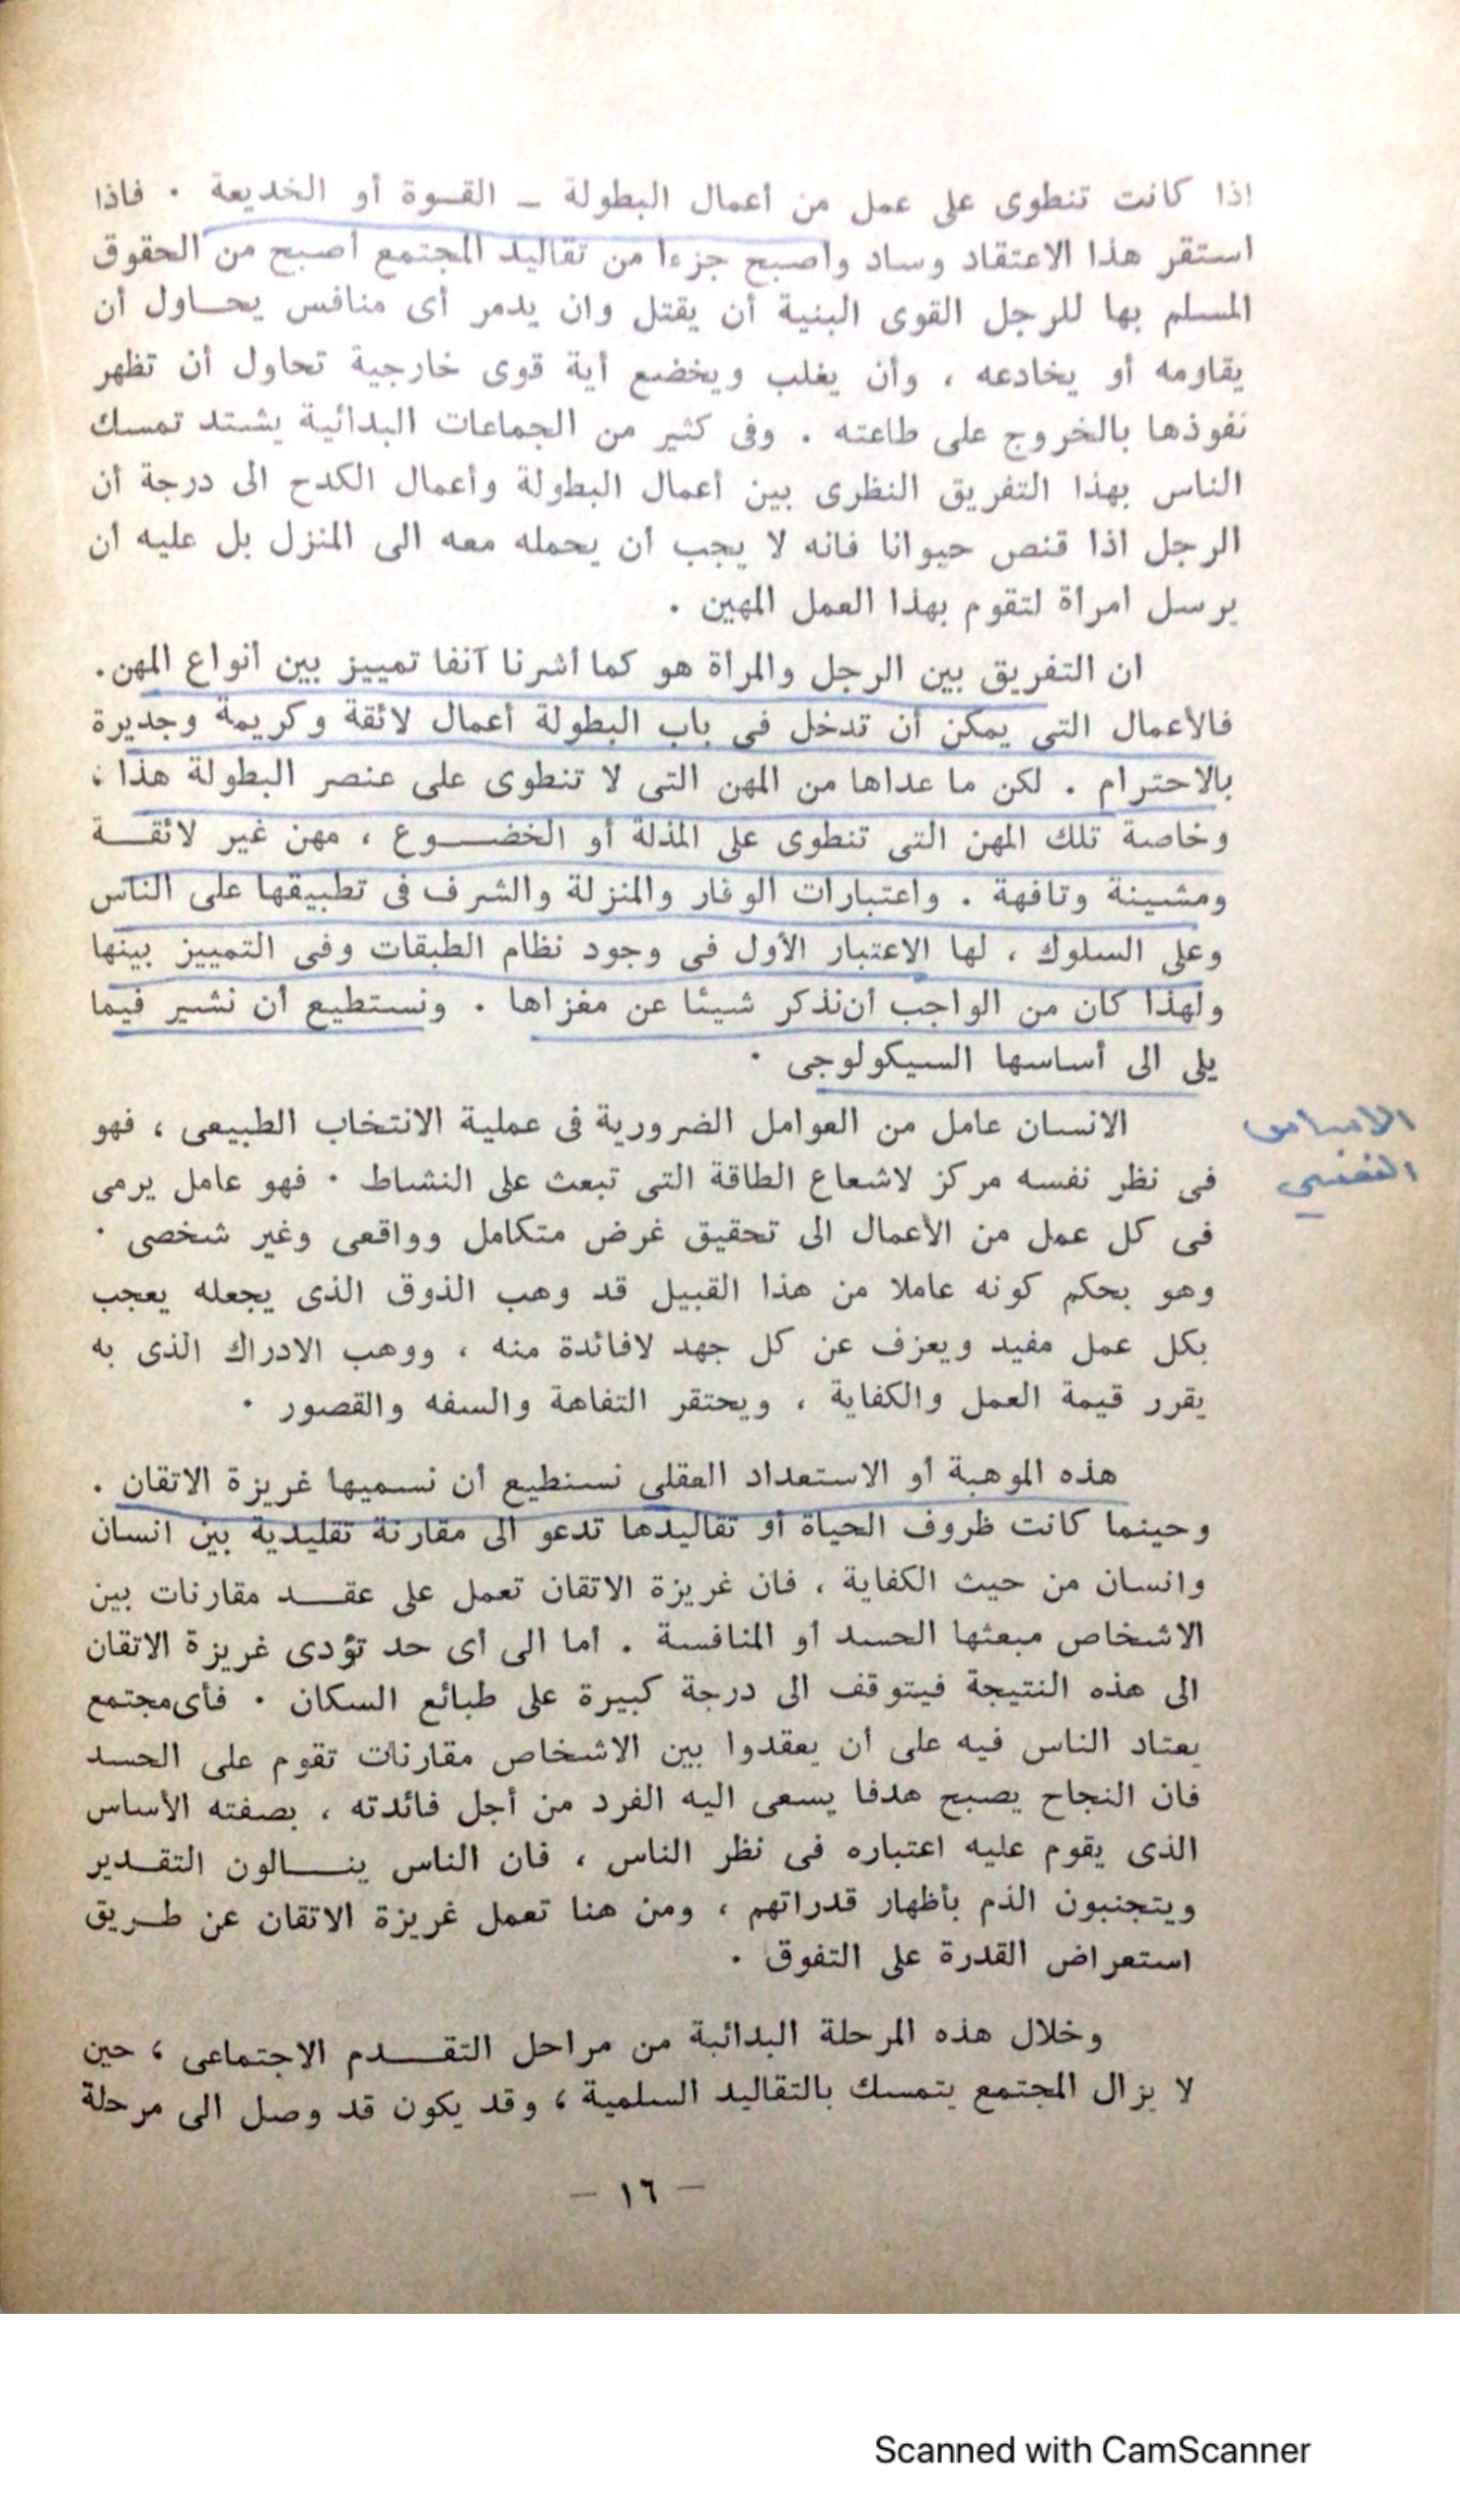 اذا كانت تنطوى على عمل من أعمال البطولة – القسوة أو الخديعة . فاذا
استقر هذا الاعتقاد وساد وأصبح جزءا من تقاليد المجتمع أصبح من الحقوق
المسلم بها للرجل القوى البنية أن يقتل وان يدمر أى منافس يحاول أن
يقاومه أو يخادعه ، وأن يغلب ويخضع أية قوى خارجية تحاول أن تظهر
نفوذها بالخروج على طاعته . وفى كثير من الجماعات البدائية يشتد تمسك
الناس بهذا التفريق النظرى بين أعمال البطولة وأعمال الكدح الى درجة أن
الرجل اذا قنص حيوانا فانه لا يجب أن يحمله معه الى المنزل بل عليه أن
يرسل امرأة لتقوم بهذا العمل المهين .
ان التفريق بين الرجل والمرأة هو كما أشرنا آنفا تمييز بين أنواع المهن.
فالأعمال التى يمكن أن تدخل فى باب البطولة أعمال لائقة وكريمة وجديرة
بالاحترام . لكن ما عداها من المهن التى لا تنطوى على عنصر البطولة هذا ،
وخاصة تلك المهن التى تنطوى على المذلة أو الخضوع ، مهن غير لائقة
ومشينة وتافهة . واعتبارات الوقار والمنزلة والشرف فى تطبيقها على الناس
وعلى السلوك ، لها الاعتبار الأول فى وجود نظام الطبقات وفى التمييز بينها
ولهذا كان من الواجب أن نذكر شيئا عن مغزاها . ونستطيع أن نشير فيما
يلى الى أساسها السيكولوجى .
الاساس
النفسي
الانسان عامل من العوامل الضرورية فى عملية الانتخاب الطبيعى ، فهو
فى نظر نفسه مركز لاشعاع الطاقة التى تبعث على النشاط . فهو عامل يرمى
فى كل عمل من الأعمال الى تحقيق غرض متكامل وواقعى وغير شخصى .
وهو بحكم كونه عاملا من هذا القبيل قد وهب الذوق الذى يجعله يعجب
بكل عمل مفيد ويعزف عن كل جهد لافائدة منه ، ووهب الادراك الذى به
يقرر قيمة العمل والكفاية ، ويحتقر التفاهة والسفه والقصور .
هذه الموهبة أو الاستعداد العقلى نستطيع أن نسميها غريزة الاتقان .
وحينما كانت ظروف الحياة أو تقاليدها تدعو الى مقارنة تقليدية بين انسان
وانسان من حيث الكفاية ، فان غريزة الاتقان تعمل على عقد مقارنات بين
الاشخاص مبعثها الحسد أو المنافسة . أما الى أى حد تؤدى غريزة الاتقان
الى هذه النتيجة فيتوقف الى درجة كبيرة على طبائع السكان . فأى مجتمع
يعتاد الناس فيه على أن يعقدوا بين الاشخاص مقارنات تقوم على الحسد
فان النجاح يصبح هدفا يسعى اليه الفرد من أجل فائدته ، بصفته الأساس
الذى يقوم عليه اعتباره فى نظر الناس ، فان الناس ينالون التقدير
ويتجنبون الذم بأظهار قدراتهم ، ومن هنا تعمل غريزة الاتقان عن طريق
استعراض القدرة على التفوق .
وخلال هذه المرحلة البدائية من مراحل التقدم الاجتماعى ، حين
لا يزال المجتمع يتمسك بالتقاليد السلمية ، وقد يكون قد وصل الى مرحلة
– ١٦ –
Scanned with CamScanner